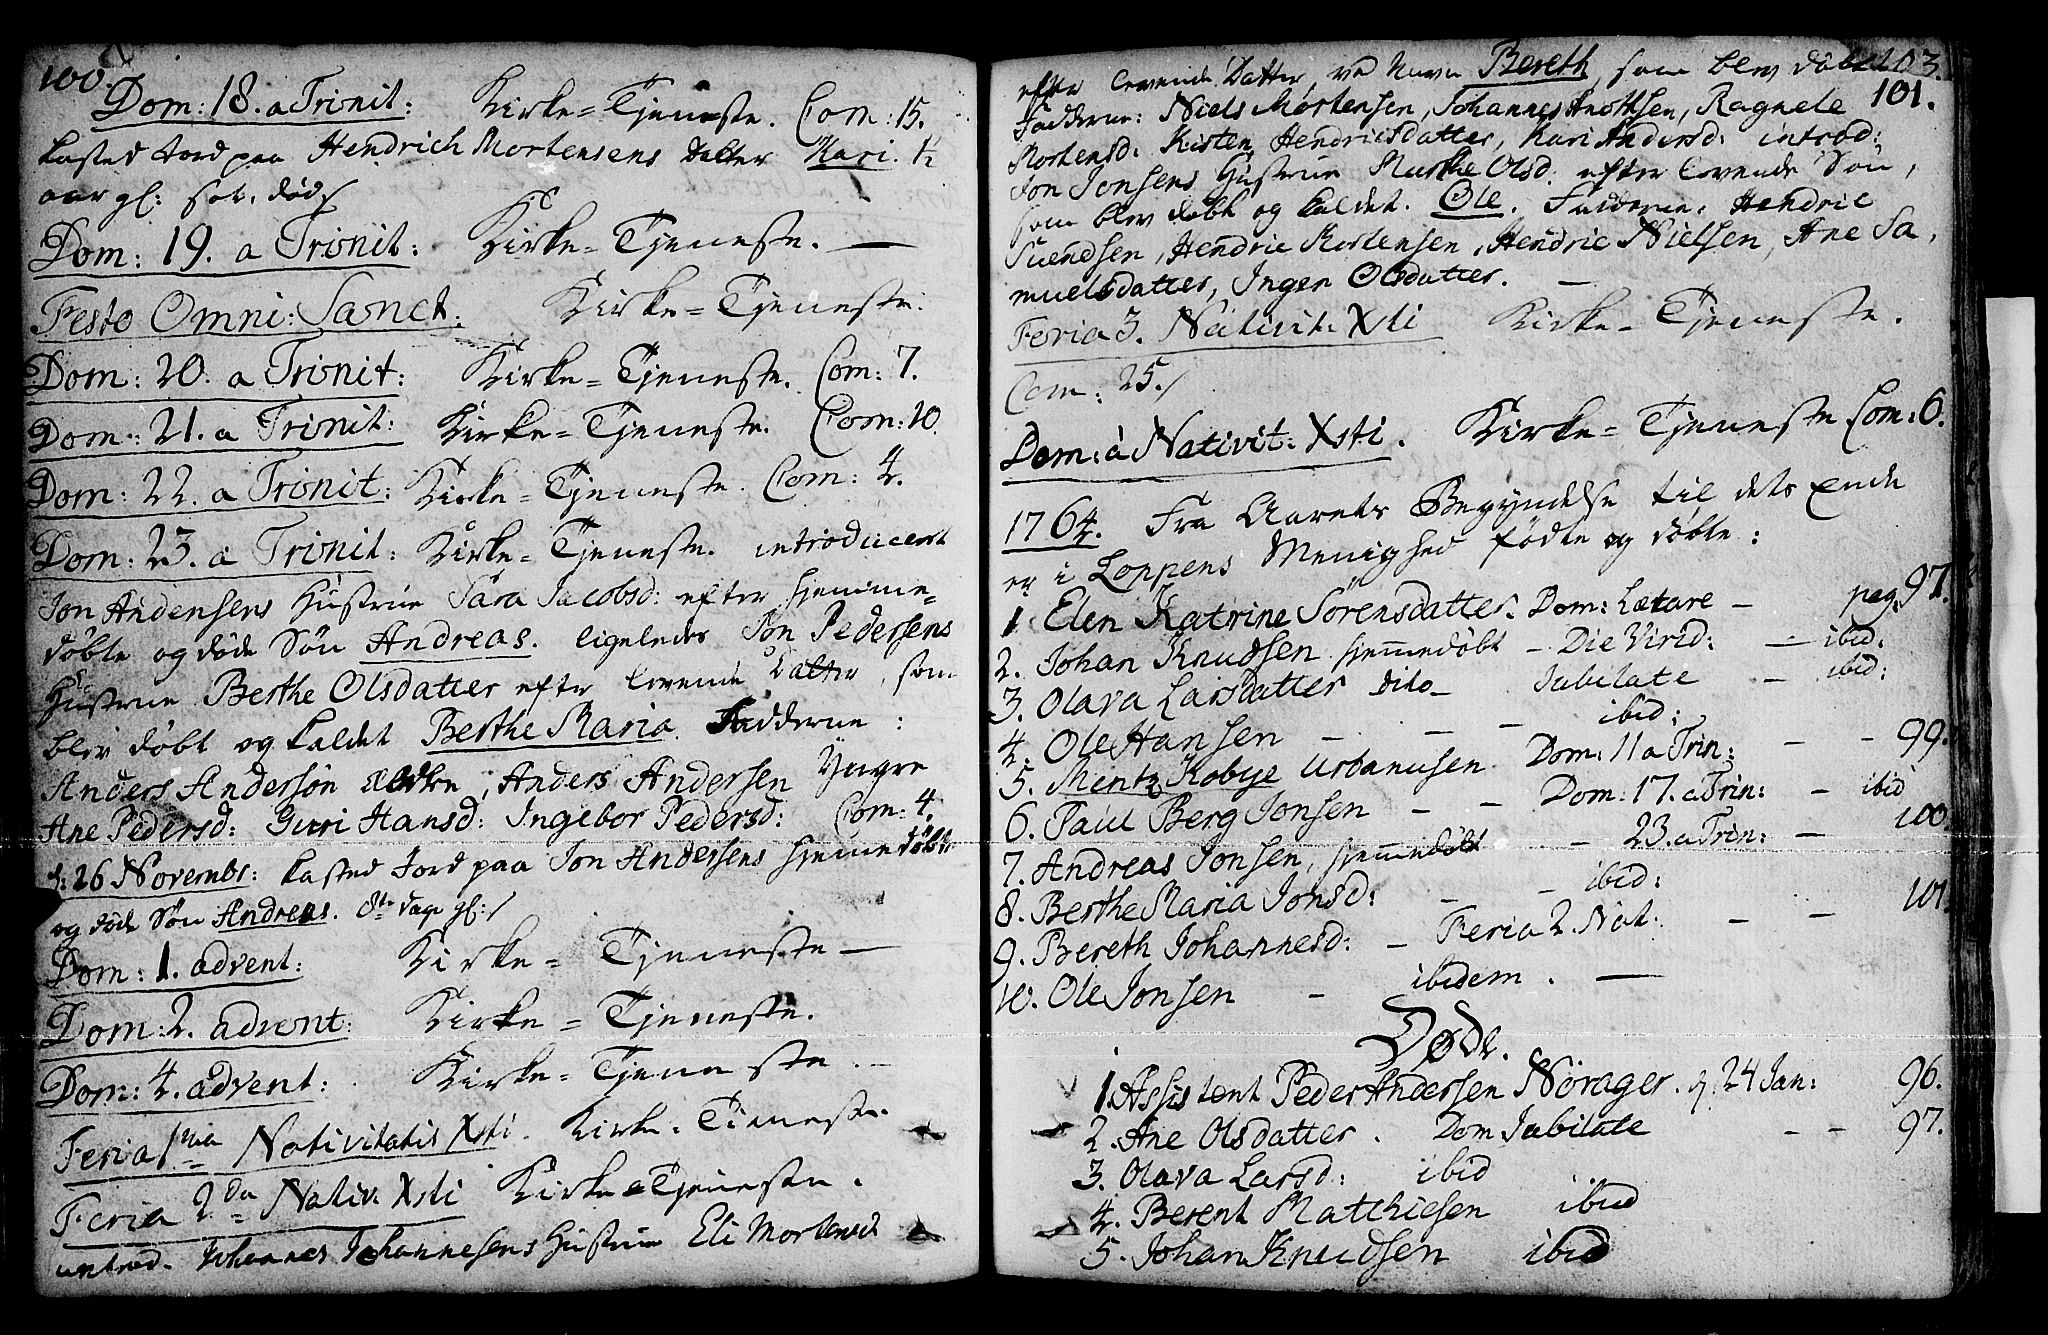 100.
Dom: 18. a Trinit: Kirke-Tjeneste. Com: 15.
kasted Jord paa Hendrich Mortensens datter Kari. 1½
aar gl: sot. død
Dom: 19. a Trinit: Kirke-Tjeneste. —
Festo Omni: Sanct: Kirke-Tjeneste.
Dom: 20. a Trinit: Kirke-Tjeneste. Com: 7.
Dom: 21. a Trinit: Kirke-Tjeneste. Com: 10.
Dom: 22. a Trinit: Kirke-Tjeneste. Com: 4.
Dom: 23. a Trinit: Kirke-Tjeneste. introducert
Jon Andersens Hustrue Sara Jacobsd: efter hjemme-
døbte og døde Søn Andreas. ligeledes Jon Pedersens
Hustrue Berthe Olsdatter efter levende Datter, som
blev døbt og kaldet Berthe Maria. Fadderne:
Anders Andersøn ældre, Anders Andersen Yngre
Ane Pedersd: Guri Hansd: Ingebor Pedersd: Com: 4.
d: 26 Novembr: kasted Jord paa Jon Andersens hjemmedøbte
og døde Søn Andreas. 8te dage gl:/
Dom: 1. advent: Kirke-Tjeneste —
Dom: 2. advent: Kirke-Tjeneste.
Dom: 4. advent: Kirke-Tjeneste. —
Feria 1ma Nativitatis Xsti. Kirke-Tieneste.
Feria 2da Nativ: Xsti Kirke-Tjeneste.
introd. Johannes Johannesens Hustrue Eli Mortensd
103.
efter levende Datter, ved Navn Bereth, som blev døbt
101.
Fadderne: Niels Mortensen, Johannes Knuthsen, Ragnele
Mortensd: Kisten Hendricsdatter, Kari Andersd: introd:
Jon Jonsens Hustrue Marthe Olsd: efter levende Søn,
som blev døbt og kaldet. Ole. Fadderne: Hendric
Suendsen, Hendric Mortensen, Hendric Nielsen, Ane Sa,
muelsdatter, Inger Olsdatter. —
Feria 3. Nativit: Xsti Kirke-Tjeneste.
Com: 25./
Dom: à Nativit: Xsti. Kirke-Tjeneste Com: 6.
1764. Fra Aarets Begyndelse til dets Ende
er i Loppens Menighed fødte og døbte:
1 Elen Katrine Sörensdatter. Dom: Lætare — pag: 97.
2. Johan Knudsen hjemmedøbt — Die Virid: — ibid:
3. Olava Larsdatter dito — Jubilate — ibid:
4. Ole Hansen — — — ibid:
5. Mentz Kobye Urbanusen Dom: 11 a Trin: — — 99.
6. Paul Berg Jonsen — — Dom: 17. a Trin: — ibid
7. Andreas Jonsen, hjemmedøbt — 23. a Trin: — 100
8. Berthe Maria Jonsd: — — ibid:
9. Bereth Johannesd: — Feria 2. Nat: — — 101.
10. Ole Jonsen — ibidem. —
Døde.
1. Assistent Peder Andersen Nörager. d. 24 Jan: 96.
2. Ane Olsdatter. Dom Jubilate — — 97.
3. Olava Larsd: ibid
4. Berent Matthiesen ibid
5. Johan Knudsen ibid